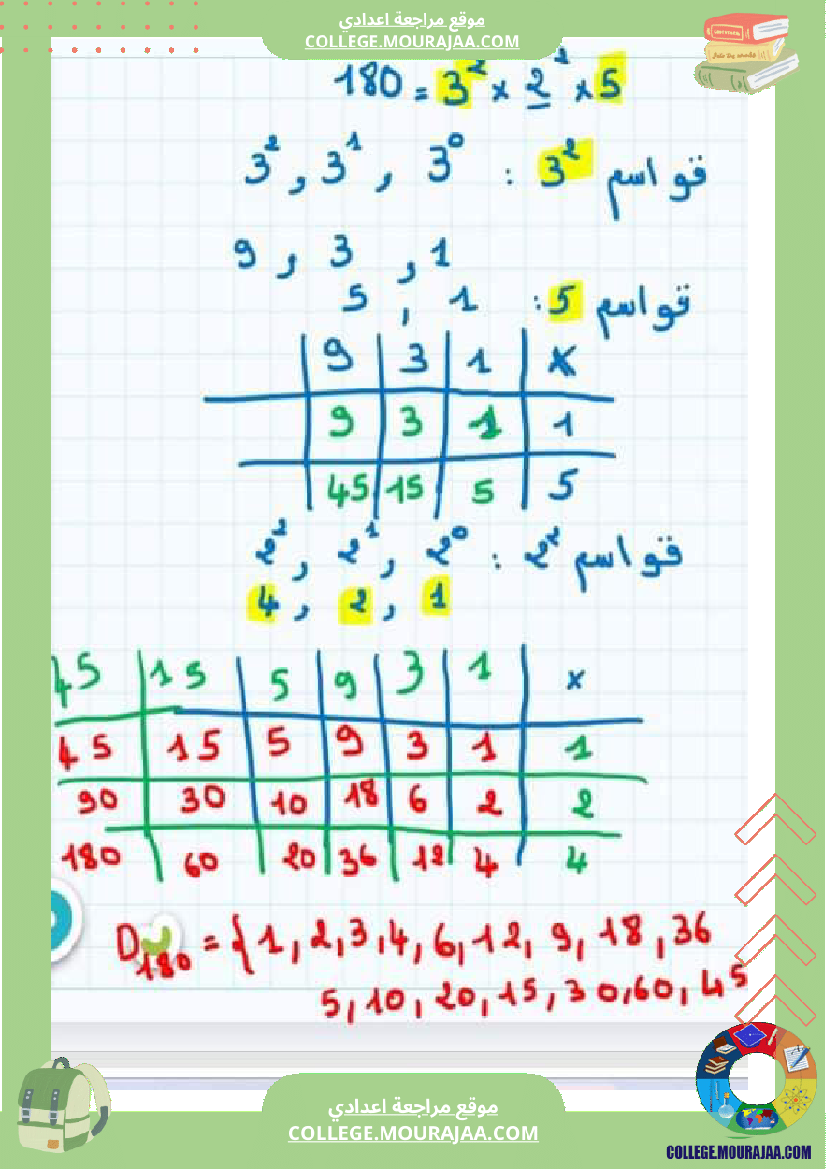 موقع مراجعة اعدادي
COLLEGE.MOURAJAA.COM
180 = 3² × 2² × 5
قواسم 3² : 3⁰ , 3¹ , 3²
1 , 3 , 9
قواسم 5 : 1 , 5
× 1 3 9
1 1 3 9
5 5 15 45
قواسم 2² : 2⁰ , 2¹ , 2²
1 , 2 , 4
× 1 3 9 5 15 45
1 1 3 9 5 15 45
2 2 6 18 10 30 90
4 4 12 36 20 60 180
D180 = {1, 2, 3, 4, 6, 12, 9, 18, 36
5, 10, 20, 15, 30, 60, 45
موقع مراجعة اعدادي
COLLEGE.MOURAJAA.COM
COLLEGE.MOURAJAA.COM